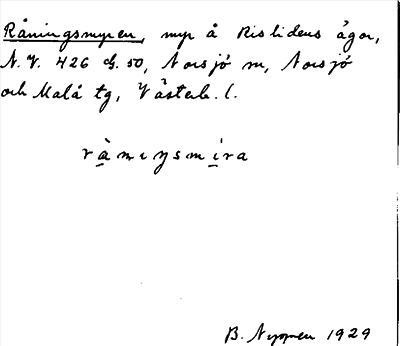 Råningsmyren, myr å Rislidens ägor,
N.V. 426 G. 50, Norsjö sn, Norsjö
och Malå tg, Västerb. l.
rånıŋsmıra
B. Nyman 1929